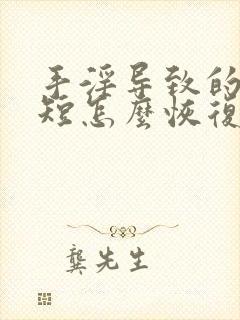 手淫导致的
短怎麼恢復
龔先生